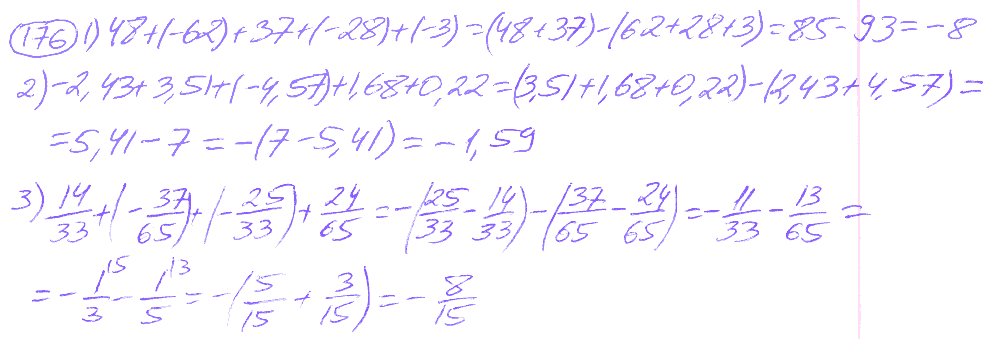 176 1) 48+(-62)+37+(-28)+(-3)=(48+37)-(62+28+3)=85-93=-8
2) -2,43+3,51+(-4,57)+1,68+0,22=(3,51+1,68+0,22)-(2,43+4,57)=
=5,41-7=-(7-5,41)=-1,59
3) 14/33+(-37/65)+(-25/33)+24/65=-(25/33-14/33)-(37/65-24/65)=-11/33-13/65=
=-1/3^15-1/5^13=-(5/15+3/15)=-8/15